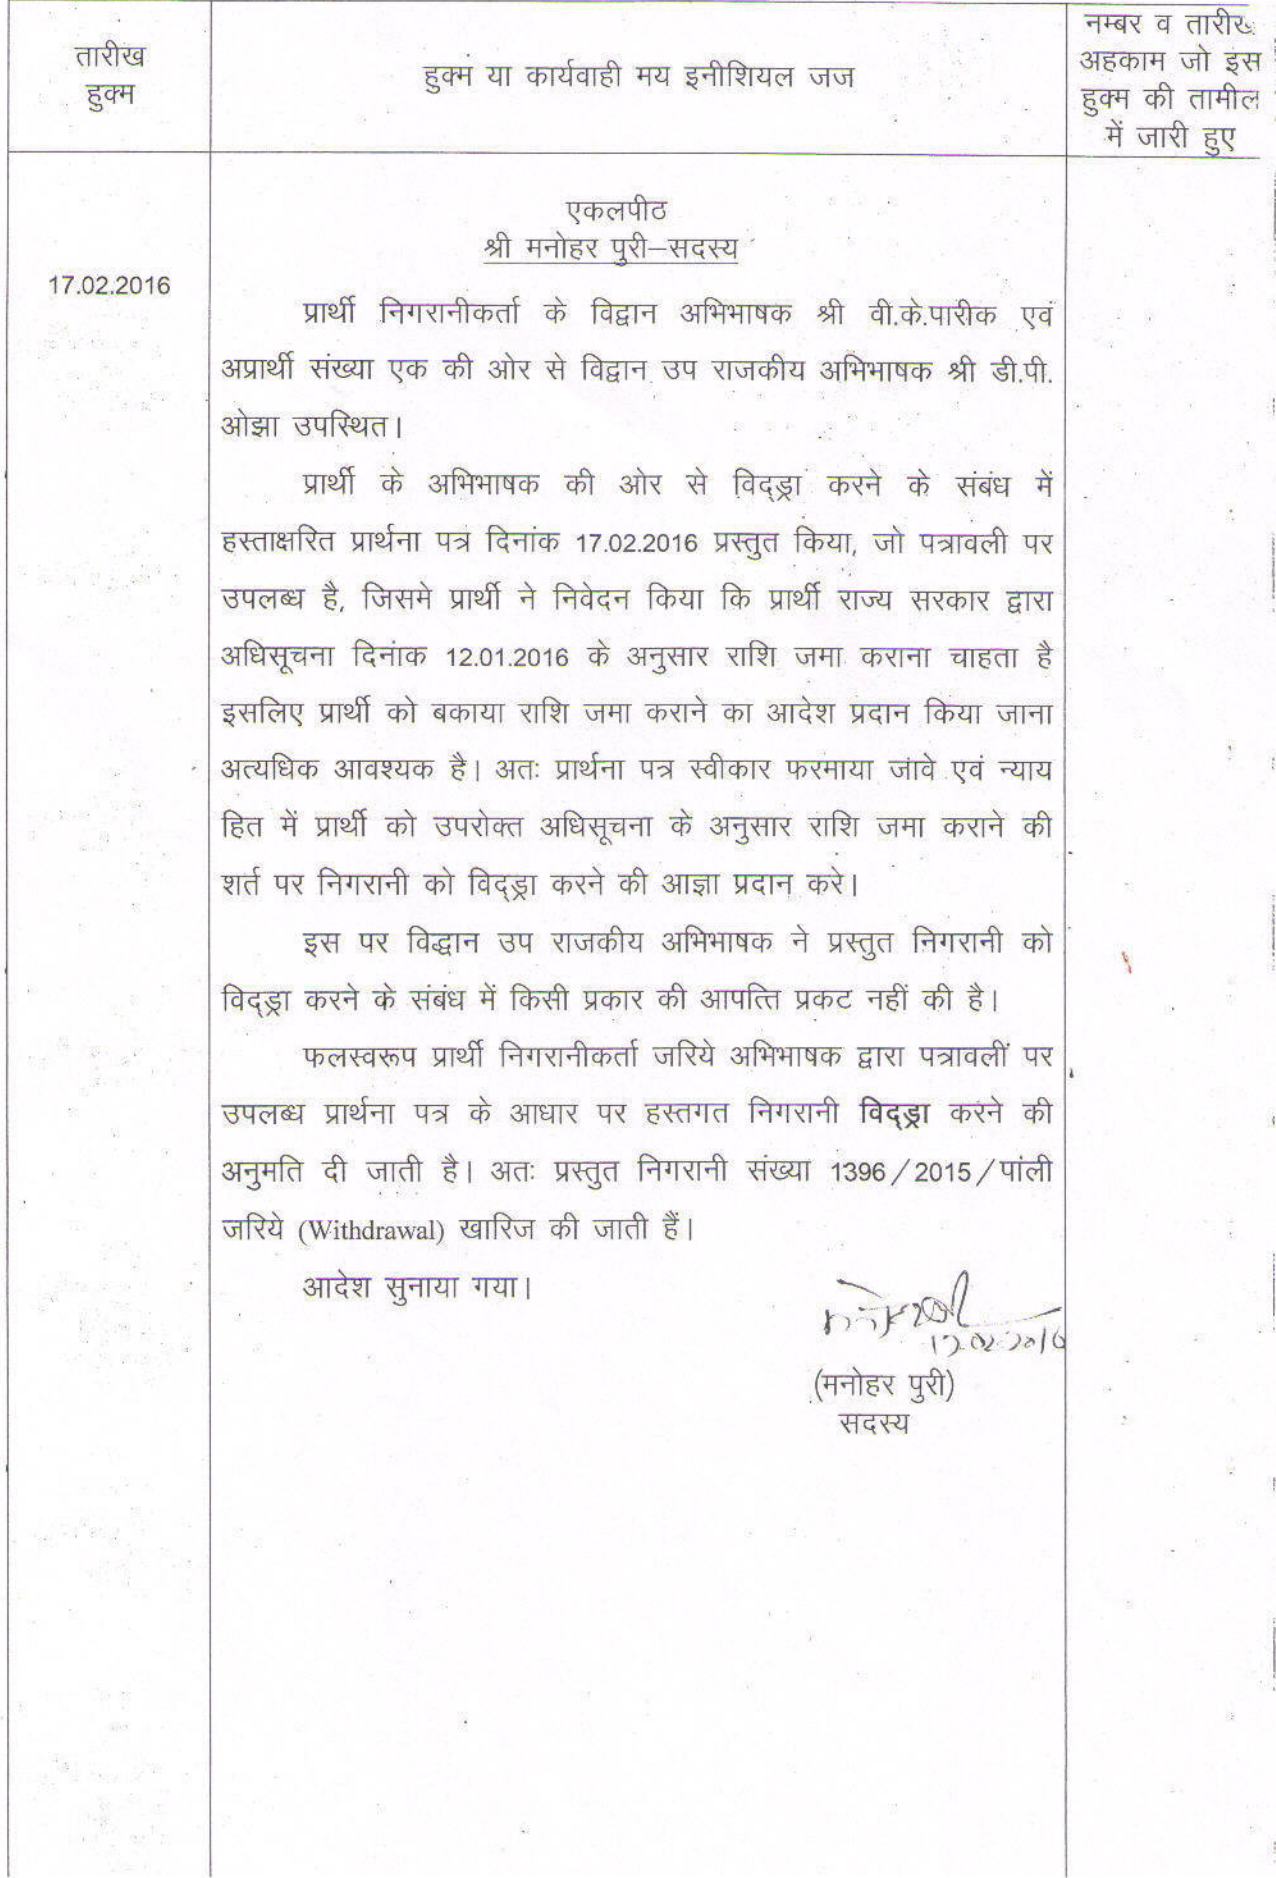 तारीख
हुक्म
हुक्म या कार्यवाही मय इनीशियल जज
नम्बर व तारीख
अहकाम जो इस
हुक्म की तामील
में जारी हुए
एकलपीठ
श्री मनोहर पुरी–सदस्य
17.02.2016
प्रार्थी निगरानीकर्ता के विद्वान अभिभाषक श्री वी.के.पारीक एवं
अप्रार्थी संख्या एक की ओर से विद्वान उप राजकीय अभिभाषक श्री डी.पी.
ओझा उपस्थित।
प्रार्थी के अभिभाषक की ओर से विद्ड्रा करने के संबंध में
हस्ताक्षरित प्रार्थना पत्र दिनांक 17.02.2016 प्रस्तुत किया, जो पत्रावली पर
उपलब्ध है, जिसमे प्रार्थी ने निवेदन किया कि प्रार्थी राज्य सरकार द्वारा
अधिसूचना दिनांक 12.01.2016 के अनुसार राशि जमा कराना चाहता है
इसलिए प्रार्थी को बकाया राशि जमा कराने का आदेश प्रदान किया जाना
अत्यधिक आवश्यक है। अतः प्रार्थना पत्र स्वीकार फरमाया जावे एवं न्याय
हित में प्रार्थी को उपरोक्त अधिसूचना के अनुसार राशि जमा कराने की
शर्त पर निगरानी को विद्ड्रा करने की आज्ञा प्रदान करे।
इस पर विद्धान उप राजकीय अभिभाषक ने प्रस्तुत निगरानी को
विद्ड्रा करने के संबंध में किसी प्रकार की आपत्ति प्रकट नहीं की है।
फलस्वरूप प्रार्थी निगरानीकर्ता जरिये अभिभाषक द्वारा पत्रावलीं पर
उपलब्ध प्रार्थना पत्र के आधार पर हस्तगत निगरानी विद्ड्रा करने की
अनुमति दी जाती है। अतः प्रस्तुत निगरानी संख्या 1396/2015/पांली
जरिये (Withdrawal) खारिज की जाती हैं।
आदेश सुनाया गया।
17.02.2016
(मनोहर पुरी)
सदस्य